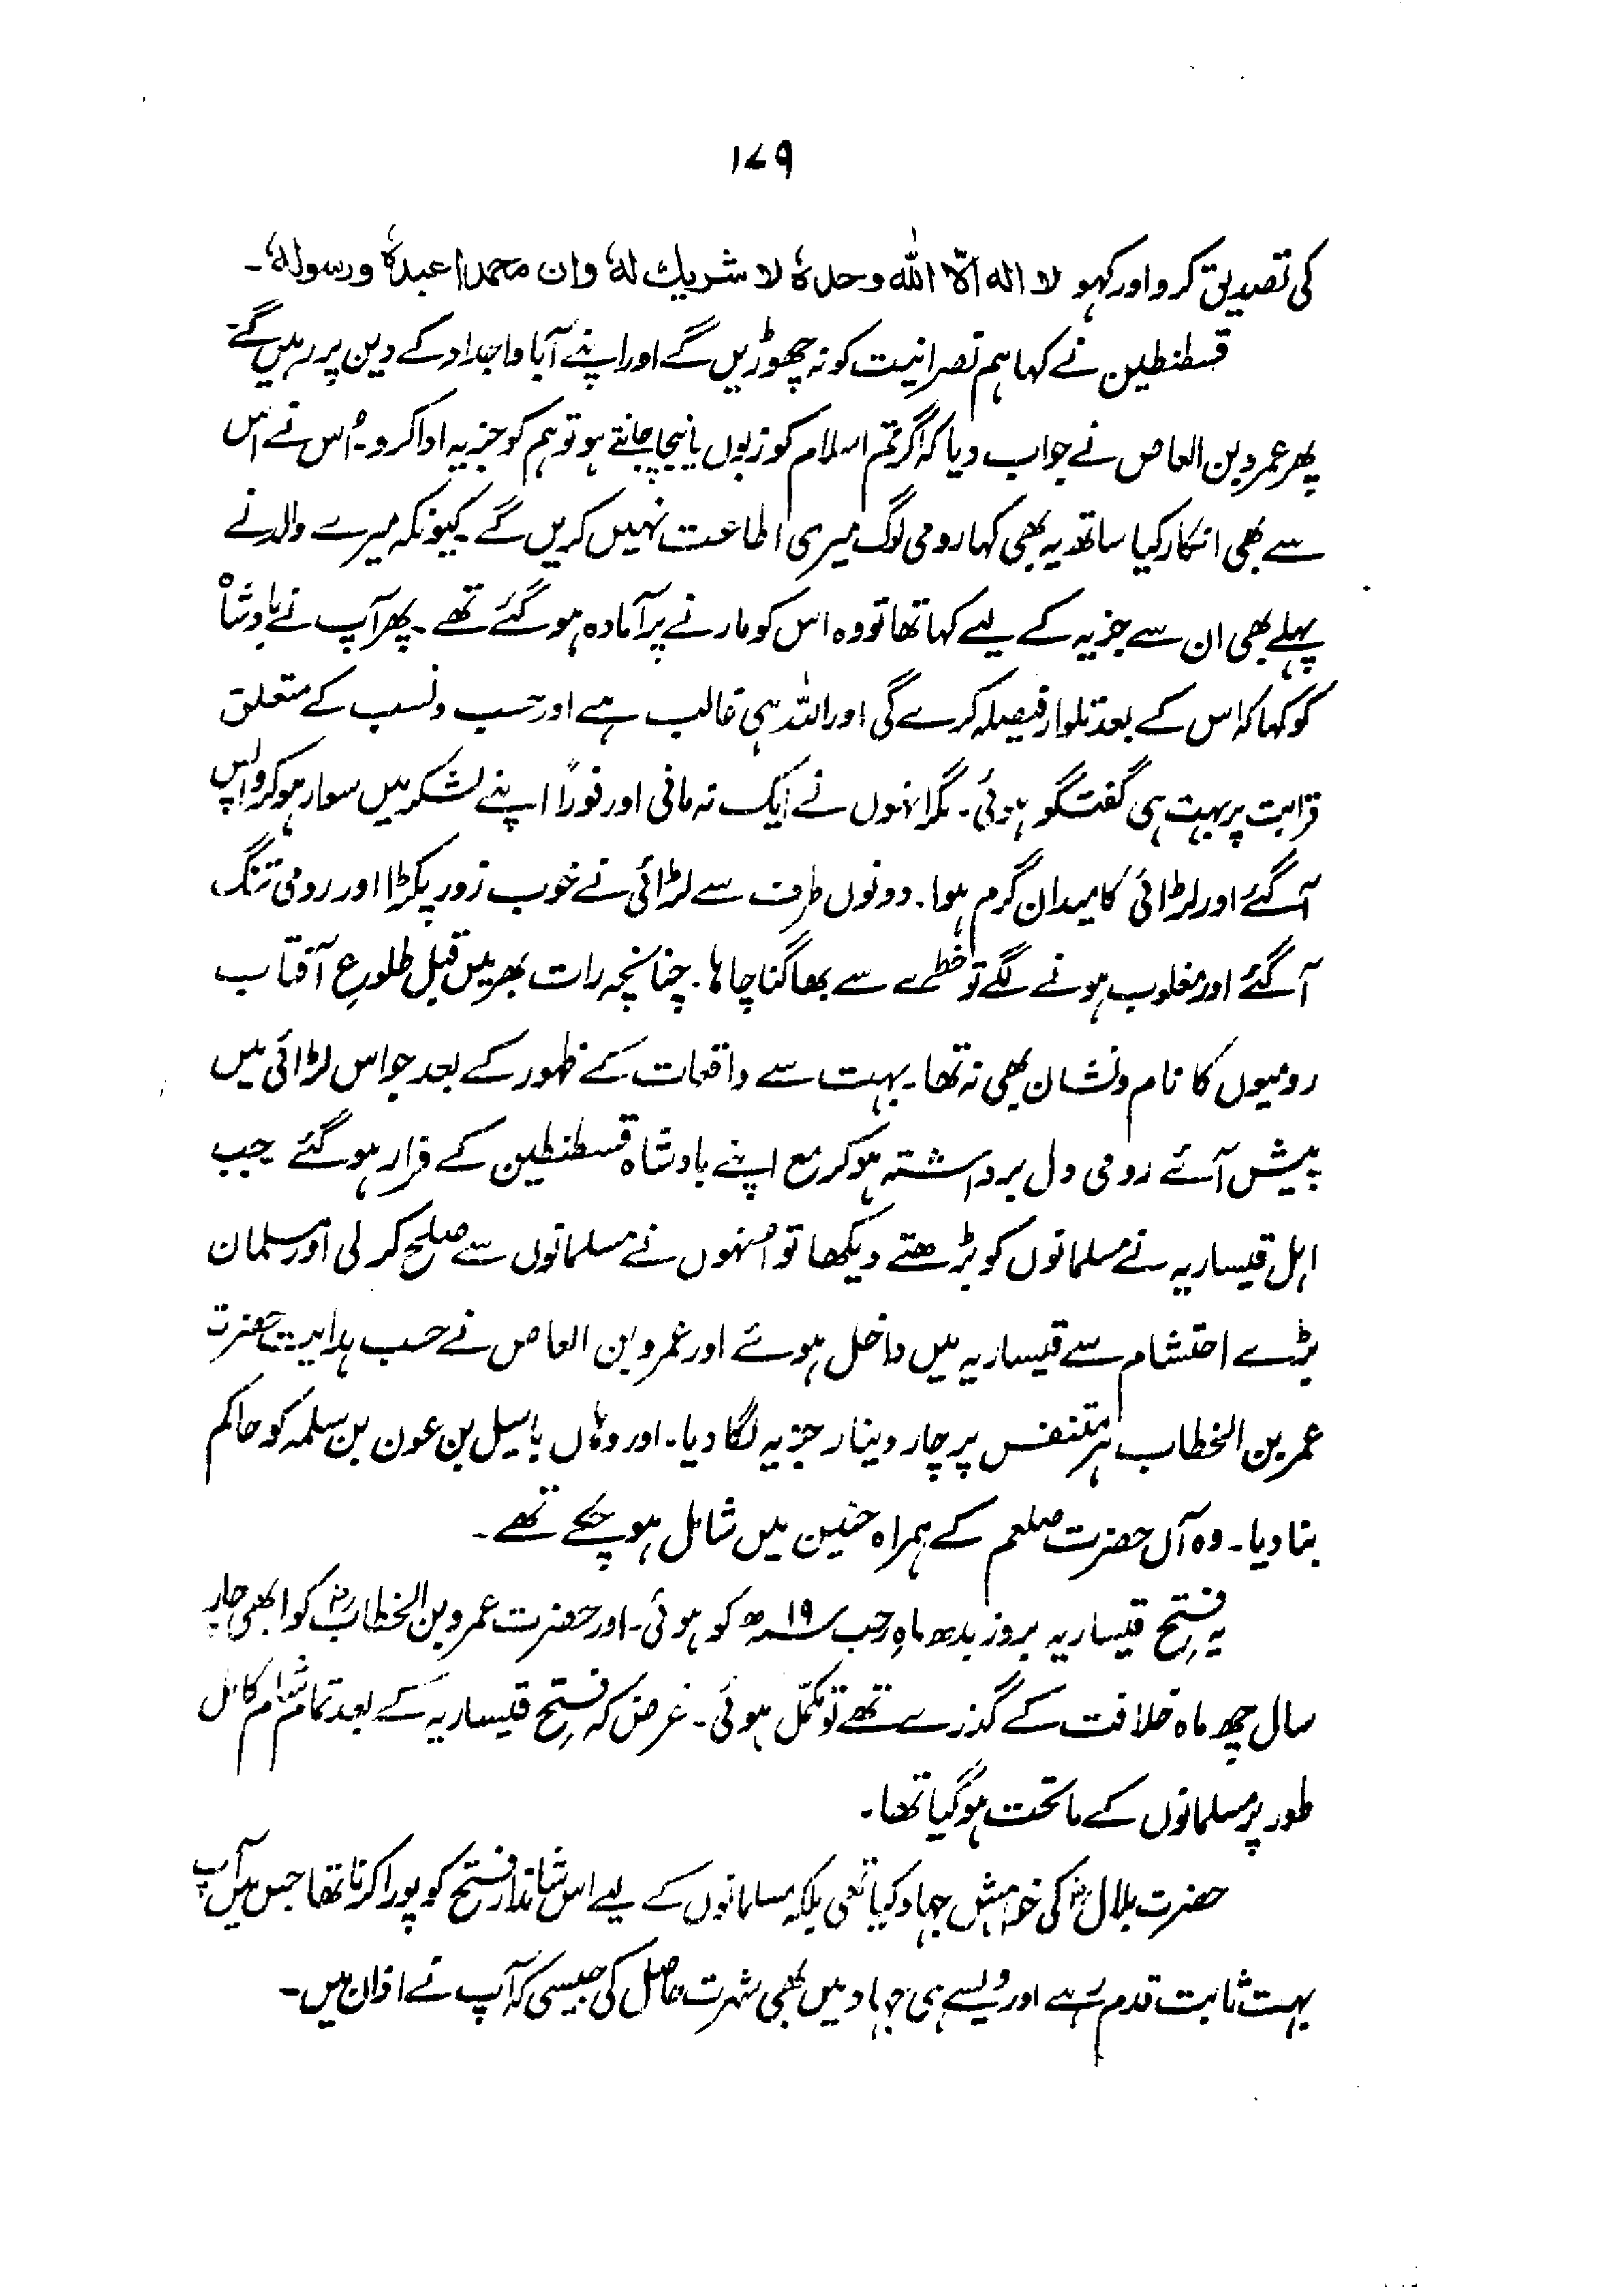 ۱۷۹
کی تصدیق کرو اور کہو لا الہ الّا اللہ وحدہٗ لا شریك لہٗ وان محمدا عبدہٗ ورسولہٗ۔
قسطنطین نے کہا ہم نصرانیت کو نہ چھوڑیں گے اور اپنے آبا و اجداد کے دین پر رہیں گے۔
پھر عمرو بن العاص نے جواب دیا کہ اگر تم اسلام کو زبوں یا نیچا جانتے ہو تو ہم کو جزیہ ادا کرو۔ اُس نے اس
سے بھی انکار کیا ساتھ یہ بھی کہا رومی لوگ میری اطاعت نہیں کریں گے۔ کیونکہ میرے والد نے
پہلے بھی ان سے جزیہ کے لیے کہا تھا تو وہ اس کو مارنے پر آمادہ ہو گئے تھے۔ پھر آپ نے بادشاہ
کو کہا کہ اس کے بعد تلوار فیصلہ کرے گی اور اللہ ہی غالب ہے اور حسب و نسب کے متعلق
قرابت پر بہت ہی گفتگو ہوئی۔ مگر انہوں نے ایک نہ مانی اور فوراً اپنے لشکر میں سوار ہو کر واپس
آ گئے اور لڑائی کا میدان گرم ہوا۔ دونوں طرف سے لڑائی نے خوب زور پکڑا اور رومی تنگ
آ گئے اور مغلوب ہونے لگے تو خطرے سے بھاگنا چاہا۔ چنانچہ رات بھر میں قبل طلوعِ آفتاب
رومیوں کا نام و نشان بھی نہ تھا۔ بہت سے واقعات کے ظہور کے بعد جو اس لڑائی میں
پیش آئے رومی دل برداشتہ ہو کر مع اپنے بادشاہ قسطنطین کے فرار ہو گئے جب
اہل قیساریہ نے مسلمانوں کو بڑھتے دیکھا تو اُنہوں نے مسلمانوں سے صلح کر لی اور مسلمان
بڑے احتشام سے قیساریہ میں داخل ہوئے اور عمرو بن العاص نے حسب ہدایت حضرت
عمر بن الخطاب ہر متنفس پر چار دینار جزیہ لگا دیا۔ اور وہاں یاسیل بن عون بن سلمہ کو حاکم
بنا دیا۔ وہ آں حضرت صلعم کے ہمراہ حنین میں شامل ہو چکے تھے۔
یہ فتح قیساریہ بروز بدھ ماہِ رجب ۱۹ھ کو ہوئی۔ اور حضرت عمرو بن الخطابؓ کو ابھی چار
سال چھ ماہ خلافت کے گذرے تھے تو مکمّل ہوئی۔ غرض کہ فتح قیساریہ کے بعد تمام شام کامل
طور پر مسلمانوں کے ماتحت ہو گیا تھا۔
حضرت بلالؓ کی خواہش جہاد کیا تھی بلکہ مسلمانوں کے لیے اس شاندار فتح کو پورا کرنا تھا جس میں آپ
بہت ثابت قدم رہے اور ویسے ہی جہاد میں بھی شہرت حاصل کی جیسی کہ آپ نے اذان میں۔